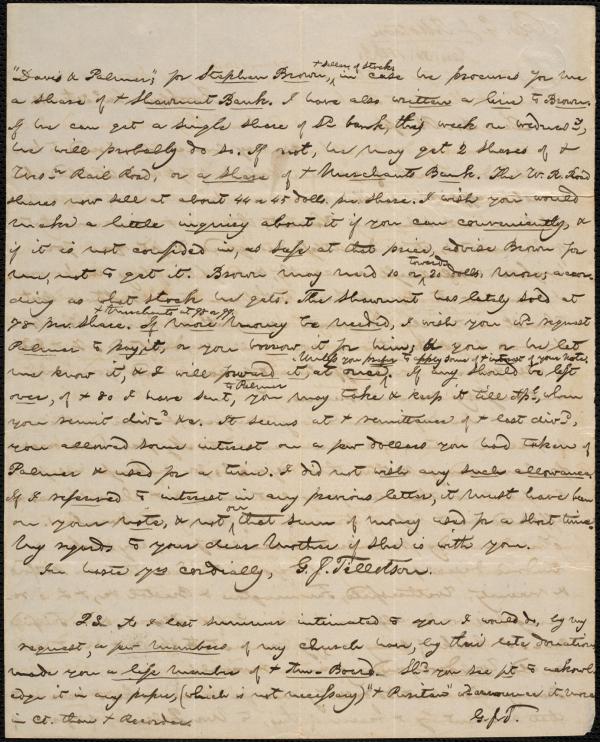 + sellers of stocks
"Davis & Palmer," for Stephen Brown, in case he procures for me
a share of + Shawmut Bank. I have also written a line to Brown.
If he can get a single share of Sd. bank, this week on
he will probably do so. If not, he may get 2 shares of +
Rail Road, or a share of + Merchants Bank. The W. R. Road
shares now sell at about 44 a 45 dolls. per share. I wish you would
make a little inquiry about it if you can conveniently, &
if it is not confided in, as safe at that price, advise Brown for
me, not to get it. Brown may need 10 or towards 20 dolls. more, accor-
ding as what stock he gets. The Shawmut has lately sold at
+ Merchants at 98 a 99.
98 per share. If more money be needed, I wish you wd. request
Palmer to pay it, or you borrow it for him; & you or he let
me know it, & I will forward it, at once. Unless you prefer to apply some of + interest of your notes
If any should be left
over, of + 80 I have sent, to Palmer you may take & keep it till Apl., when
you remit divd. &c. It seems at + remittance of + last divd.,
you allowed some interest on a few dollars you had taken of
Palmer & used for a time. I did not wish any such allowance.
If I referred to interest in any previous letter, it must have been
on your note, & not on that sum of money used for a short time.
My regards to your dear Mother if she is with you.
In haste yrs cordially, G. J. Tillotson.
P.S. As I last summer intimated to you I would do, by my
request, a few members of my church have, by their late donation
made you a life member of + Am. Board. Shd. you see fit to acknowl-
edge it in any paper, (which is not necessary) "+ Puritan" announce it more
in Ct. than + Recorder.
G.J.T.